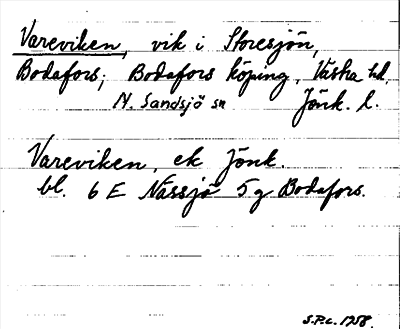 Vareviken, vik i Storesjön,
Bodafors; Bodafors köping, Västra hd,
N. Sandsjö sn Jönk. l.
Vareviken, ek Jönk.
bl. 6 E Nässjö 5 g Bodafors.
S.P.L. 1958.